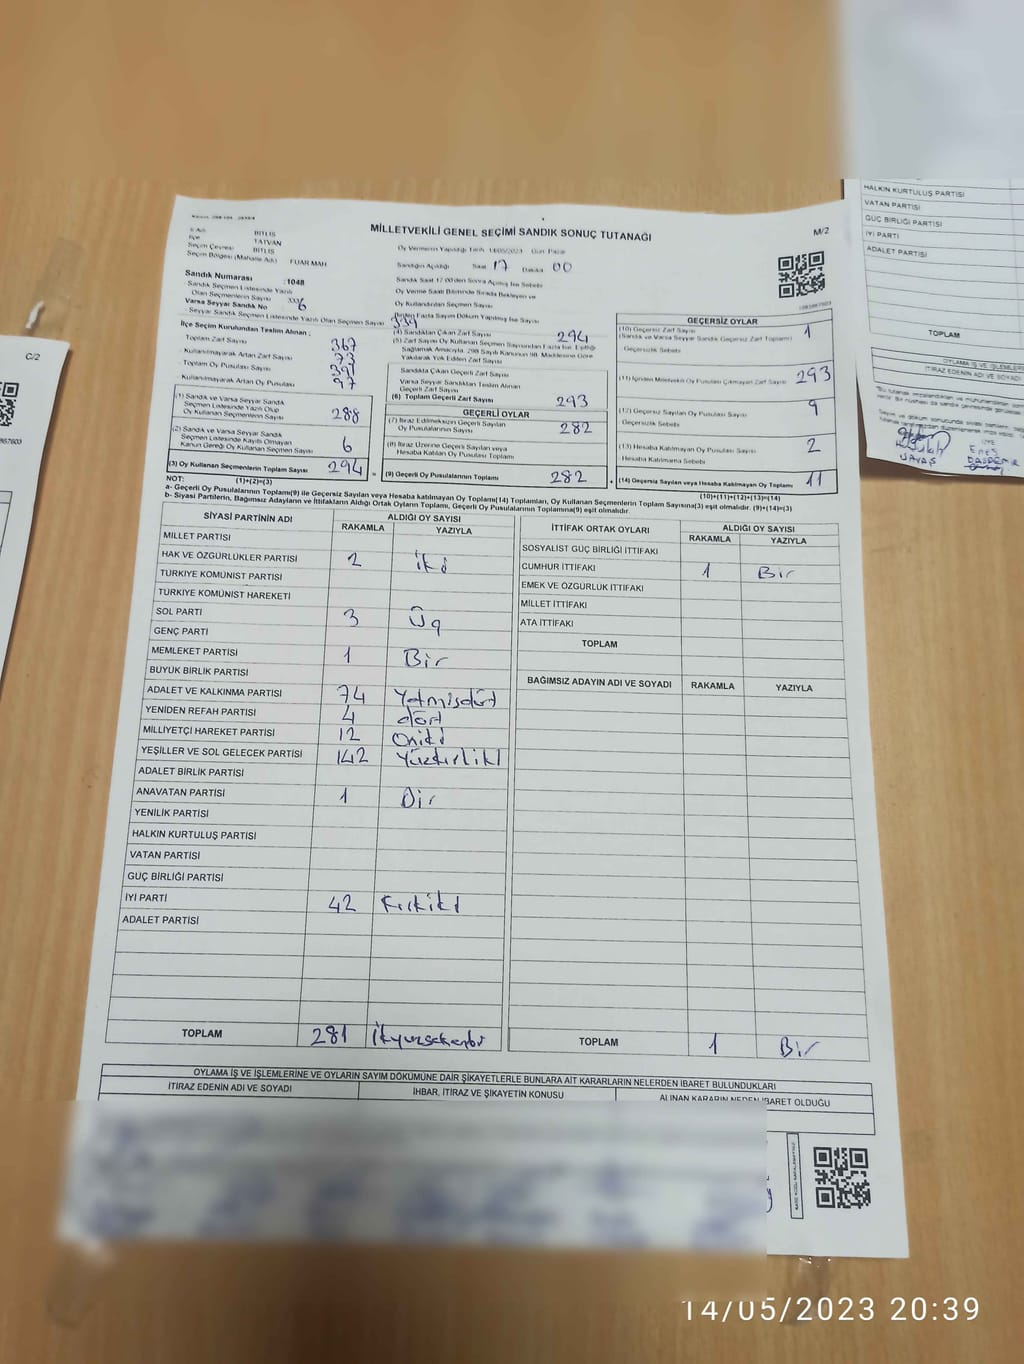 MİLLETVEKİLİ GENEL SEÇİMİ SANDIK SONUÇ TUTANAĞI
M/2
İl Adı BİTLİS
İlçe TATVAN
Seçim Çevresi BİTLİS
Seçim Bölgesi (Mahalle Adı) FUAR MAH
Oy Vermenin Yapıldığı Tarih 14/05/2023 Gün Pazar
Sandığın Açıldığı Saat 17 Dakika 00
Sandık Numarası : 1048
Sandık Saat 17:00'den Sonra Açılmış İse Sebebi
Sandık Seçmen Listesinde Yazılı
Olan Seçmenlerin Sayısı
Oy Verme Saati Bitiminde Sırada Bekleyen ve
Oy Kullandırılan Seçmen Sayısı
Varsa Seyyar Sandık No
Seyyar Sandık Seçmen Listesinde Yazılı Olan Seçmen Sayısı
Birden Fazla Sayım Döküm Yapılmış İse Sayısı
İlçe Seçim Kurulundan Teslim Alınan :
Toplam Zarf Sayısı 367
Kullanılmayarak Artan Zarf Sayısı 73
Toplam Oy Pusulası Sayısı 391
Kullanılmayarak Artan Oy Pusulası 97
(1) Sandık ve Varsa Seyyar Sandık
Seçmen Listesinde Yazılı Olup
Oy Kullanan Seçmenlerin Sayısı 288
(2) Sandık ve Varsa Seyyar Sandık
Seçmen Listesinde Kayıtlı Olmayan
Kanun Gereği Oy Kullanan Seçmen Sayısı 6
(3) Oy Kullanan Seçmenlerin Toplam Sayısı 294
(1)+(2)=(3)
(4) Sandıktan Çıkan Zarf Sayısı 294
(5) Zarf Sayısı Oy Kullanan Seçmen Sayısından Fazla İse, Eşitliği
Sağlamak Amacıyla, 298 Sayılı Kanunun 98. Maddesine Göre
Yakılarak Yok Edilen Zarf Sayısı
Sandıkta Çıkan Geçerli Zarf Sayısı
Varsa Seyyar Sandıktan Teslim Alınan
Geçerli Zarf Sayısı
(6) Toplam Geçerli Zarf Sayısı 293
GEÇERLİ OYLAR
(7) İtiraz Edilmeksizin Geçerli Sayılan
Oy Pusulasının Sayısı 282
(8) İtiraz Üzerine Geçerli Sayılan veya
Hesaba Katılan Oy Pusulası Toplamı
= (9) Geçerli Oy Pusulalarının Toplamı 282
GEÇERSİZ OYLAR
(10) Geçersiz Zarf Sayısı 1
(Sandık ve Varsa Seyyar Sandık Geçersiz Zarf Toplamı)
Geçersizlik Sebebi
(11) İçinden Milletvekili Oy Pusulası Çıkmayan Zarf Sayısı 293
(12) Geçersiz Sayılan Oy Pusulası Sayısı 9
Geçersizlik Sebebi
(13) Hesaba Katılmayan Oy Pusulası Sayısı 2
Hesaba Katılmama Sebebi
+ (14) Geçersiz Sayılan veya Hesaba Katılmayan Oy Toplamı 11
(10)+(11)+(12)+(13)=(14)
NOT:
a- Geçerli Oy Pusulalarının Toplamı(9) ile Geçersiz Sayılan veya Hesaba katılmayan Oy Toplamı(14) Toplamları, Oy Kullanan Seçmenlerin Toplam Sayısına(3) eşit olmalıdır. (9)+(14)=(3)
b- Siyasi Partilerin, Bağımsız Adayların ve İttifakların Aldığı Ortak Oyların Toplamı, Geçerli Oy Pusulalarının Toplamına(9) eşit olmalıdır.
SİYASİ PARTİNİN ADI ALDIĞI OY SAYISI
RAKAMLA YAZIYLA
MİLLET PARTİSİ
HAK VE ÖZGÜRLÜKLER PARTİSİ 2 iki
TÜRKİYE KOMÜNİST PARTİSİ
TÜRKİYE KOMÜNİST HAREKETİ
SOL PARTİ 3 Üç
GENÇ PARTİ
MEMLEKET PARTİSİ 1 Bir
BÜYÜK BİRLİK PARTİSİ
ADALET VE KALKINMA PARTİSİ 74 Yetmişdört
YENİDEN REFAH PARTİSİ 4 dört
MİLLİYETÇİ HAREKET PARTİSİ 12 Oniki
YEŞİLLER VE SOL GELECEK PARTİSİ 142 Yüzkırkiki
ADALET BİRLİK PARTİSİ
ANAVATAN PARTİSİ 1 Bir
YENİLİK PARTİSİ
HALKIN KURTULUŞ PARTİSİ
VATAN PARTİSİ
GÜÇ BİRLİĞİ PARTİSİ
İYİ PARTİ 42 Kırkiki
ADALET PARTİSİ
TOPLAM 281
İTTİFAK ORTAK OYLARI ALDIĞI OY SAYISI
RAKAMLA YAZIYLA
SOSYALİST GÜÇ BİRLİĞİ İTTİFAKI
CUMHUR İTTİFAKI 1 Bir
EMEK VE ÖZGÜRLÜK İTTİFAKI
MİLLET İTTİFAKI
ATA İTTİFAKI
TOPLAM
BAĞIMSIZ ADAYIN ADI VE SOYADI RAKAMLA YAZIYLA
TOPLAM 1 Bir
OYLAMA İŞ VE İŞLEMLERİNE VE OYLARIN SAYIM DÖKÜMÜNE DAİR ŞİKAYETLERLE BUNLARA AİT KARARLARIN NELERDEN İBARET BULUNDUKLARI
İTİRAZ EDENİN ADI VE SOYADI İHBAR, İTİRAZ VE ŞİKAYETİN KONUSU ALINAN KARARIN NEDEN İBARET OLDUĞU
C/2
HALKIN KURTULUŞ PARTİSİ
VATAN PARTİSİ
GÜÇ BİRLİĞİ PARTİSİ
İYİ PARTİ
ADALET PARTİSİ
TOPLAM
OYLAMA İŞ VE İŞLEMLERİNE
İTİRAZ EDENİN ADI VE SOYADI
ÜYE
14/05/2023 20:39